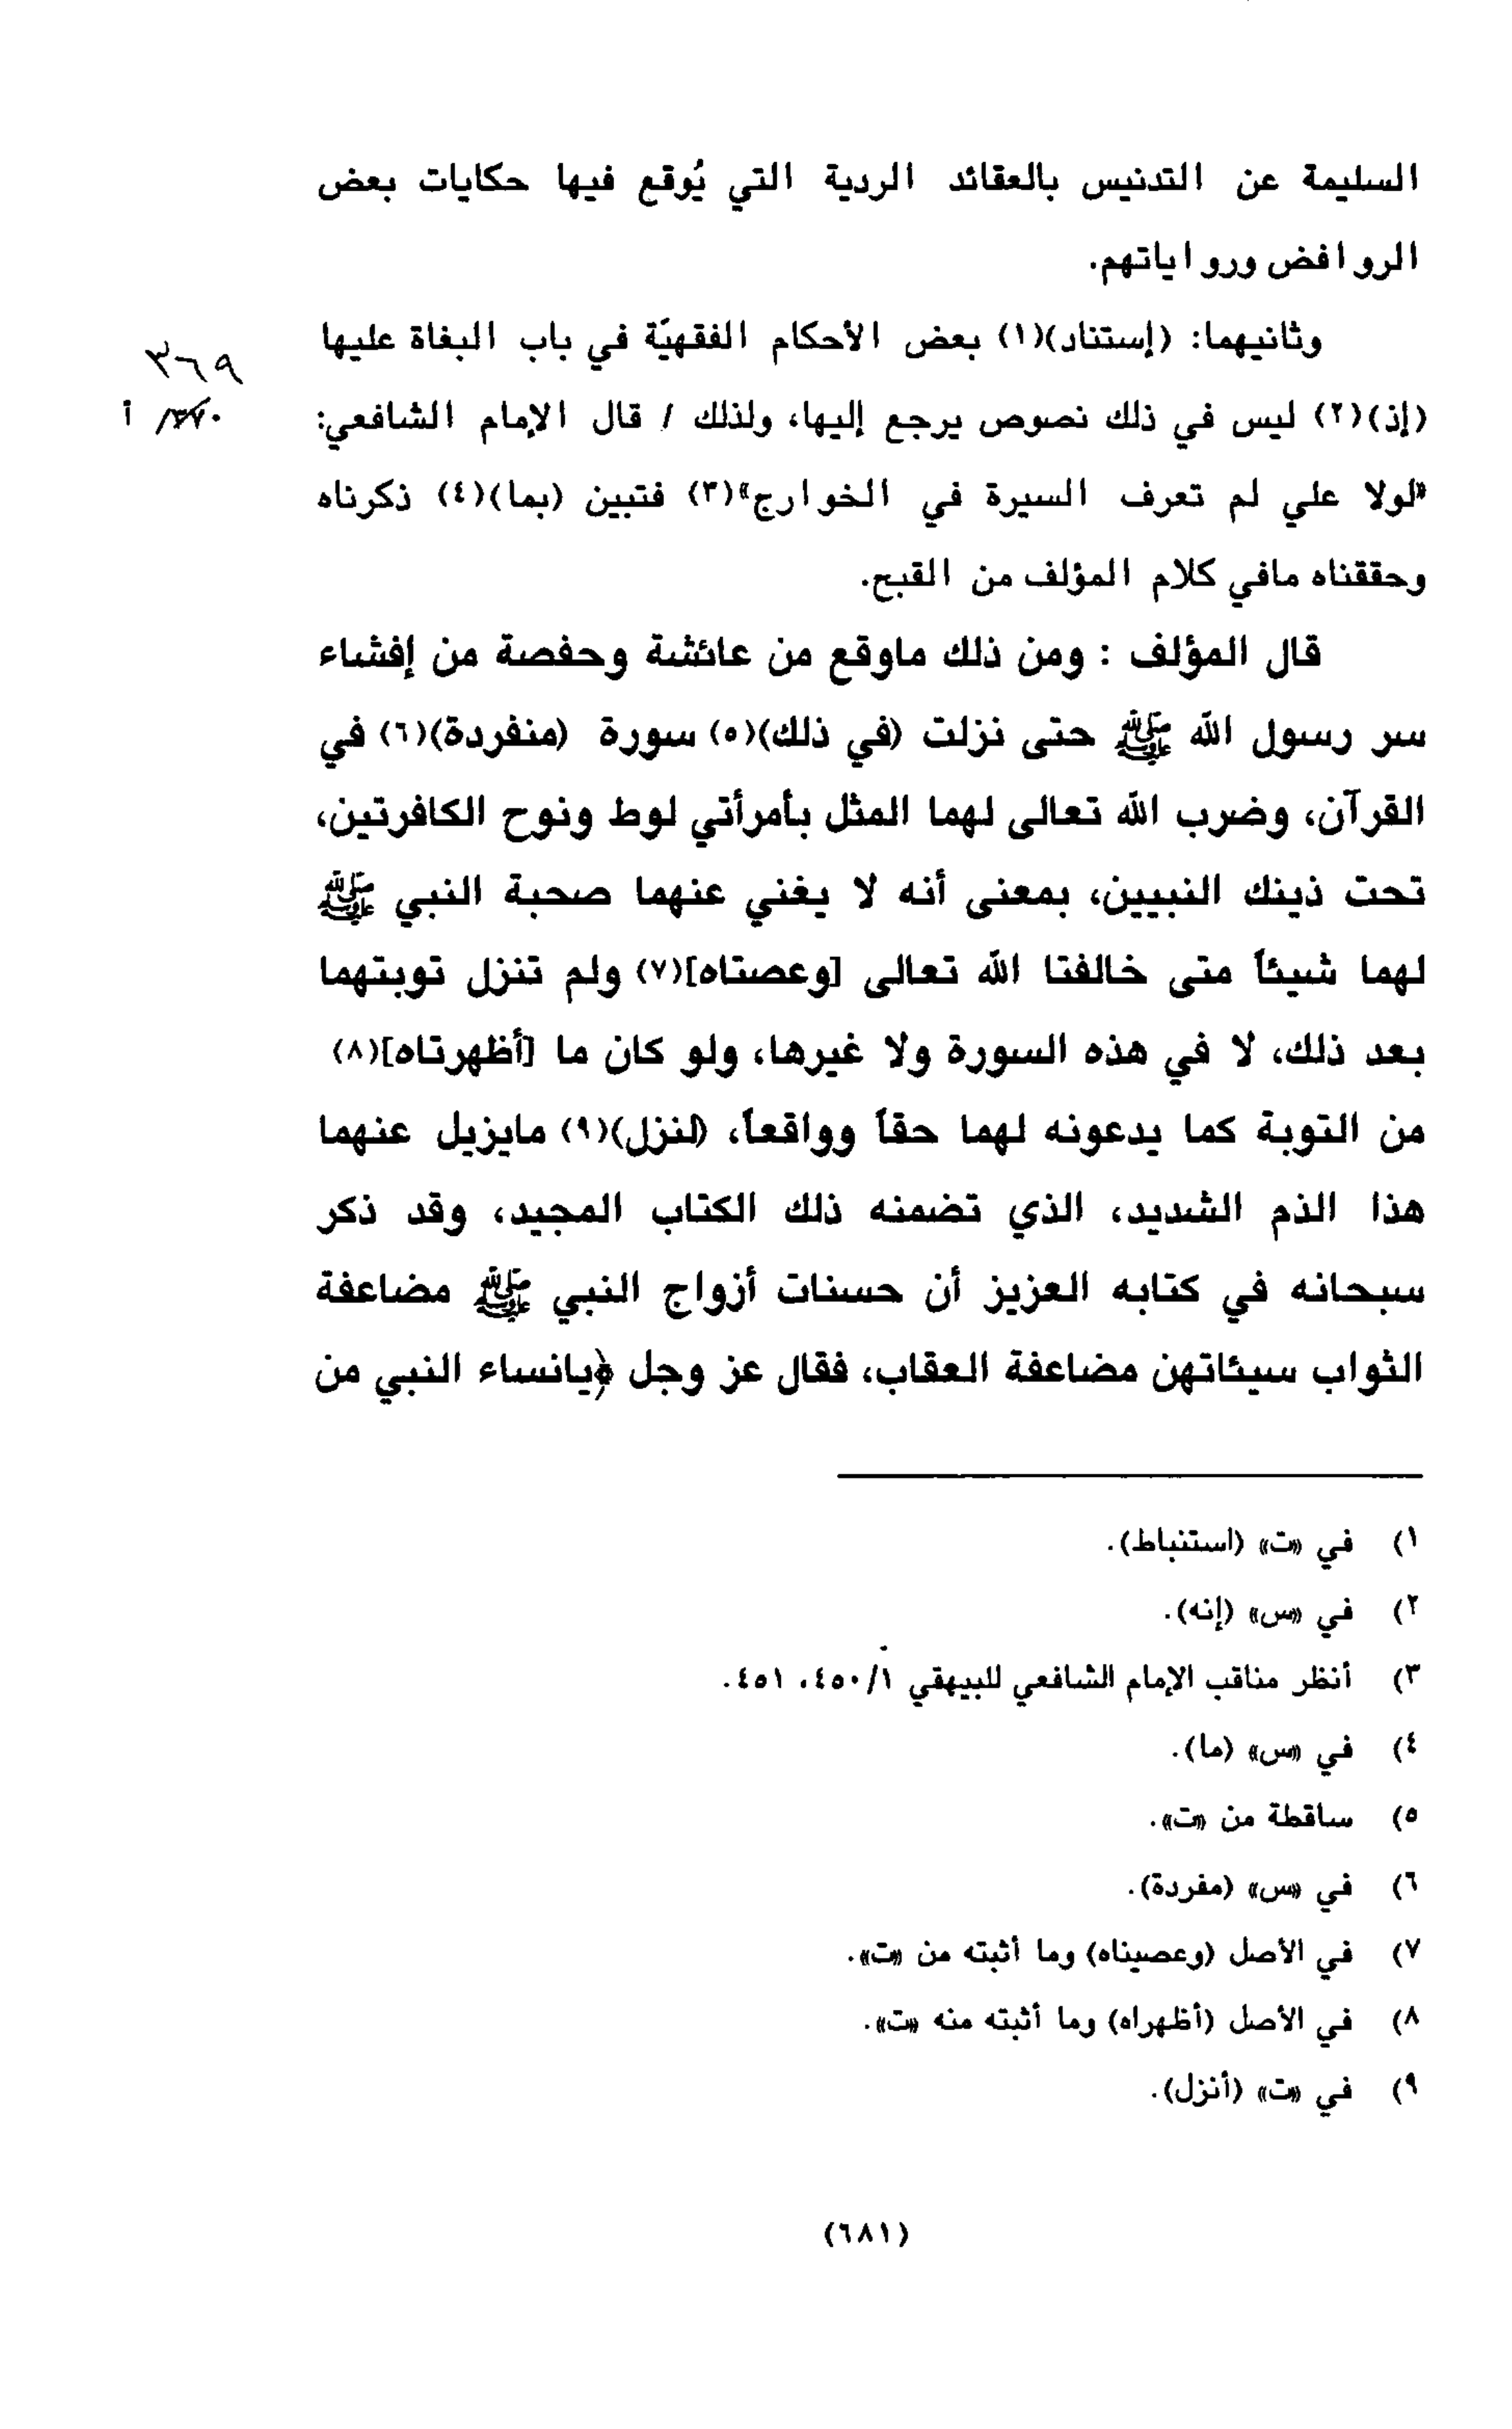 السليمة عن التدنيس بالعقائد الردية التي يُوقع فيها حكايات بعض
الروافض ورواياتهم.
وثانيهما: (إستناد)(١) بعض الأحكام الفقهيّة في باب البغاة عليها
٣٦٩
(إذ)(٢) ليس في ذلك نصوص يرجع إليها، ولذلك / قال الإمام الشافعي:
٣٧٠/ أ
«لولا علي لم تعرف السيرة في الخوارج»(٣) فتبين (بما)(٤) ذكرناه
وحققناه مافي كلام المؤلف من القبح.
قال المؤلف : ومن ذلك ماوقع من عائشة وحفصة من إفشاء
سر رسول الله ﷺ حتى نزلت (في ذلك)(٥) سورة (منفردة)(٦) في
القرآن، وضرب الله تعالى لهما المثل بأمرأتي لوط ونوح الكافرتين،
تحت ذينك النبيين، بمعنى أنه لا يغني عنهما صحبة النبي ﷺ
لهما شيئاً متى خالفتا الله تعالى [وعصتاه](٧) ولم تنزل توبتهما
بعد ذلك، لا في هذه السورة ولا غيرها، ولو كان ما [أظهرتاه](٨)
من التوبة كما يدعونه لهما حقاً وواقعاً، (لنزل)(٩) مايزيل عنهما
هذا الذم الشديد، الذي تضمنه ذلك الكتاب المجيد، وقد ذكر
سبحانه في كتابه العزيز أن حسنات أزواج النبي ﷺ مضاعفة
الثواب سيئاتهن مضاعفة العقاب، فقال عز وجل ﴿يانساء النبي من
١) في «ت» (استنباط).
٢) في «س» (إنه).
٣) أنظر مناقب الإمام الشافعي للبيهقي ١/٤٥٠، ٤٥١.
٤) في «س» (ما).
٥) ساقطة من «ت».
٦) في «س» (مفردة).
٧) في الأصل (وعصيناه) وما أثبته من «ت».
٨) في الأصل (أظهراه) وما أثبته منه «ت».
٩) في «ت» (أنزل).
(٦٨١)